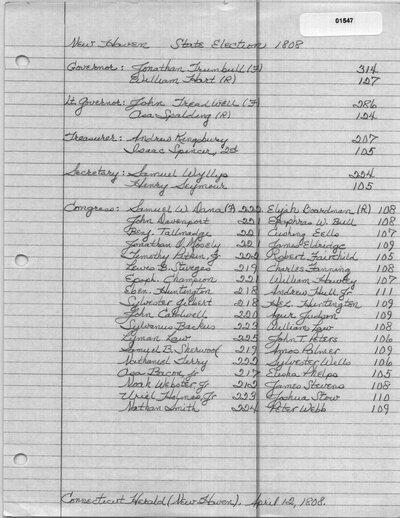 01547
New Haven State Election 1808
Governor: Jonathan Trumbull (F) 314
William Hart (R) 127
Lt. Governor: John Treadwell (F) 286
Asa Spalding (R) 124
Treasurer: Andrew Kingsbury 207
Isaac Spencer, 2d 105
Secretary: Samuel Wyllys 224
Henry Seymour 105
Congress: Samuel W. Dana (F) 222 Elijah Boardman (R) 108
John Davenport 221 Epaphras W. Bull 108
Benj. Tallmadge 221 Cushing Eells 107
Jonathan O. Mosely 221 James Eldredge 109
Timothy Pitkin, Jr. 222 Robert Fairchild 105
Lewis B. Sturges 219 Charles Fanning 108
Epaph. Champion 221 William Hawley 107
Eben. Huntington 218 Andrew Hull, Jr. 111
Sylvester Gilbert 218 Hez. Huntington 109
John Caldwell 220 Agur Judson 109
Sylvanus Backus 223 William Law 108
Lyman Law 225 John T. Peters 106
Samuel B. Sherwood 217 Amos Palmer 109
Nathaniel Terry 222 Sylvester Wells 106
Asa Bacon, Jr. 217 Elisha Phelps 105
Noah Webster, Jr. 202 James Stevens 108
Uriel Holmes, Jr. 223 Joshua Stow 110
Nathan Smith 224 Peter Webb 109
Connecticut Herald (New Haven). April 12, 1808.